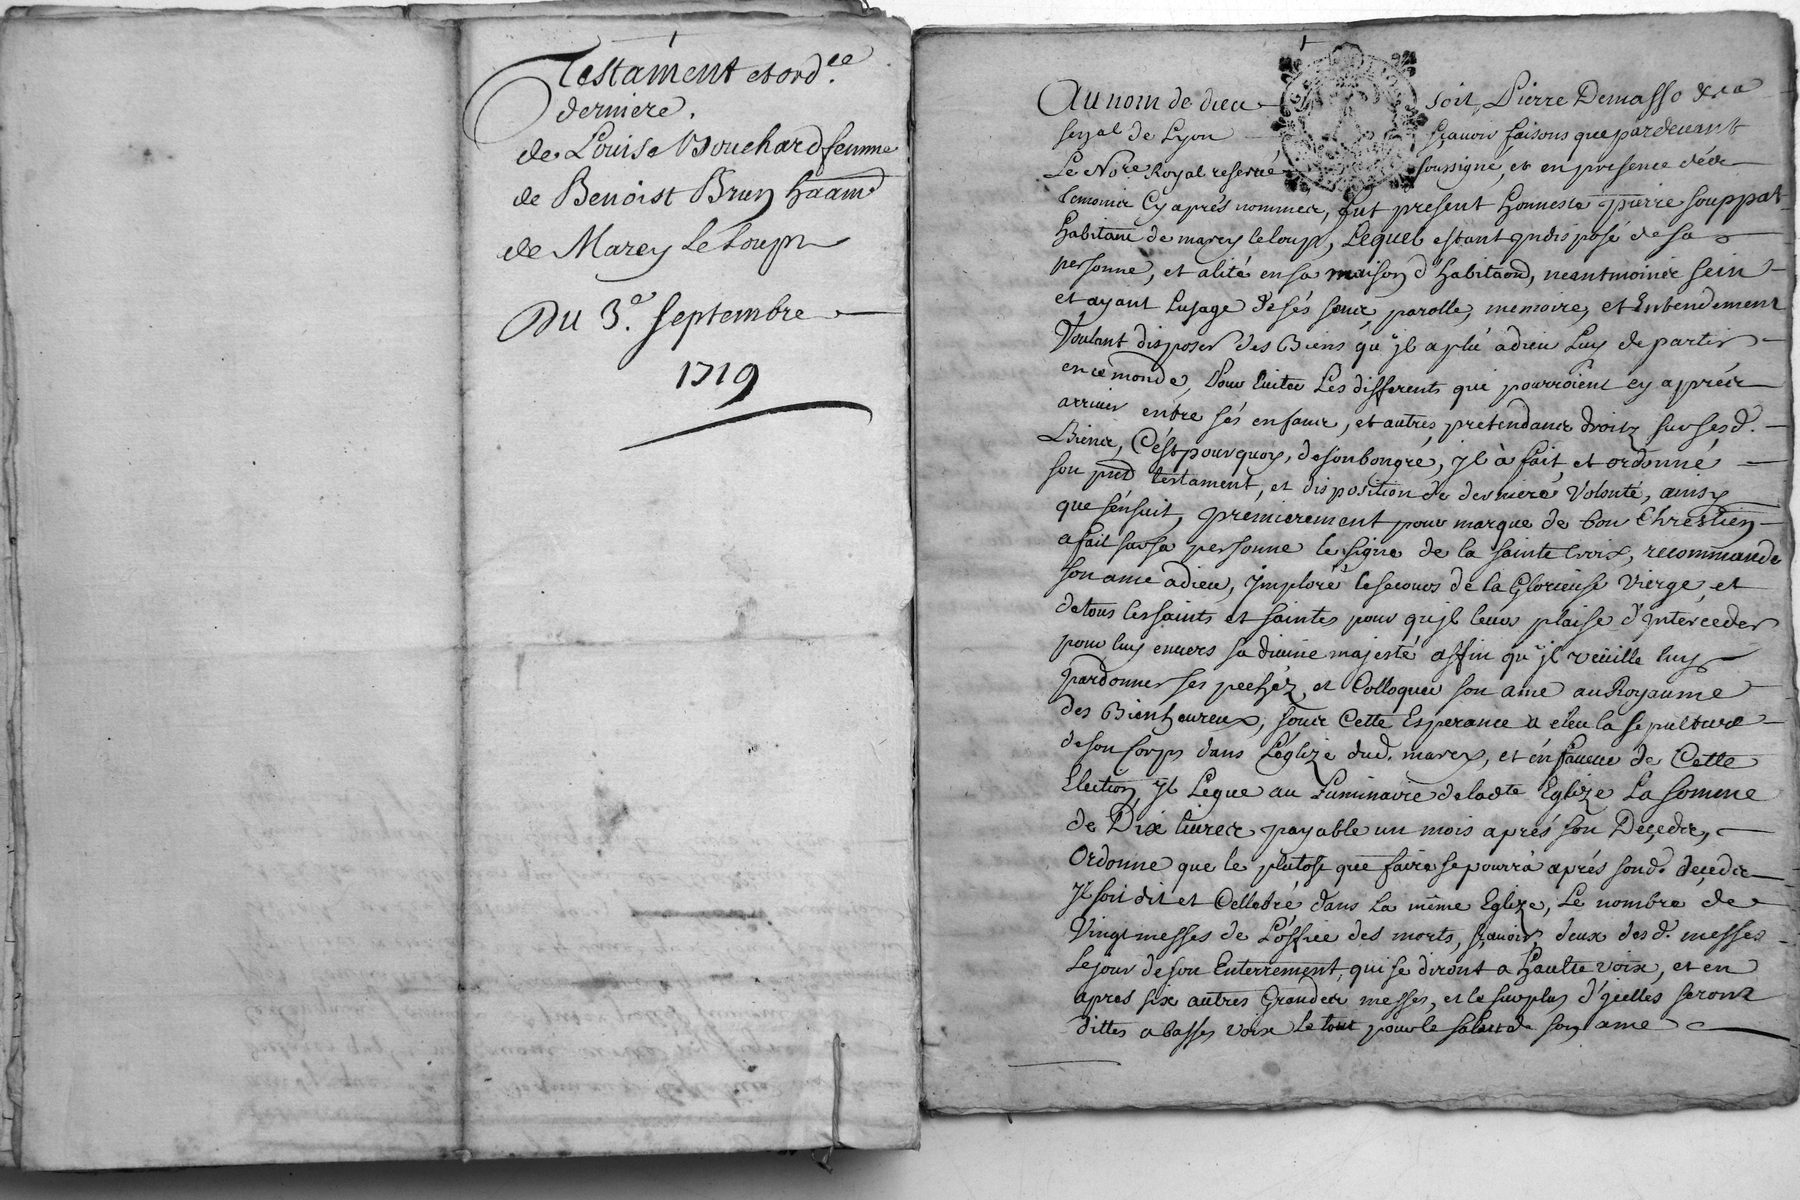 Testament et ord.ce
derniere.
de Louise Bouchard femme
de Benoist Brun haam.
de Marcy Le Loup
Du 3.e Septembre
1719
Au nom de dieu soit, Pierre Demasso
senal de Lyon sçavoir faisons que pardevant
Le No.re Royal reservé soussigné, et en presence des
temoins Cy aprés nommez, fut present honneste pierre souppat
habitant de marcy le loup, Lequel estant indisposé de sa
personne, et alité en sa maison d'habitaon, neantmoins sein
et ayant Lusage de sés sens, parolle, memoire, et Entendement
Voulant disposer des Biens qu'jl a plû a dieu Luy departir
en ce monde, Pour Eviter Les differents qui pourroient cy aprés
arriver entre sés enfans, et autres pretendans droitz sur sesd.
Biens, C'ést pourquoy, de son bon gré, jl à fait et ordonné
son pnt testament, et disposition de derniere Volonté, ainsy
que s'énsuit, premierement pour marque de bon Chrestien
a fait sur sa personne le signe de la sainte Croix, recommande
son ame a dieu, jmploré le secours de la Glorieuse Vierge, et
de tous les saints et saintes pour qu'jl leur plaise d'jnterceder
pour luy envers sa divine majesté affin qu'jl veüille luy
pardonner ses pechéz, et Colloquer son ame au Royaume
des Bienheureux, sous Cette Esperance a eleu la sepulture
de son Corps dans L'églize dud. marcy, et én faveur de Cette
Election, jl Légue au Luminaire de lad.te Eglize La somme
de Dix livres payable un mois aprés son Deçeds,
Ordonne que le plutost que faire se pourrà aprés sond. deçeds
jl soit dit et Cellebré dans La même Eglize, Le nombre de
Vingt messes de L'office des morts, sçavoir deux desd. messes
Le jour de son Enterrement, qui se diront a haulte voix, et en
apres six autres Grandes messes, et le surplus d'jcelles seront
dittes a basses voix Le tout pour le salut de son ame